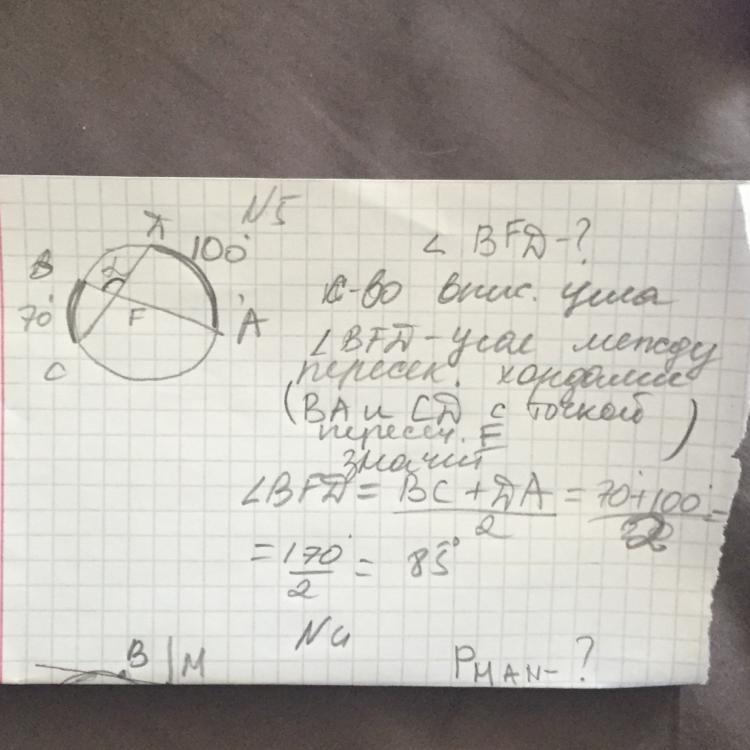 N5
Д
100°
B
α
70°
F
A
C
∠ BFД-?
св-во впис. угла
∠BFД-угол между
пересек. хордами
(BA и CД с точкой
пересеч. F)
значит
∠BFД = BC + ДA / 2 = 70°+100° / 2 =
= 170° / 2 = 85°
N4
B M
P MAN-?